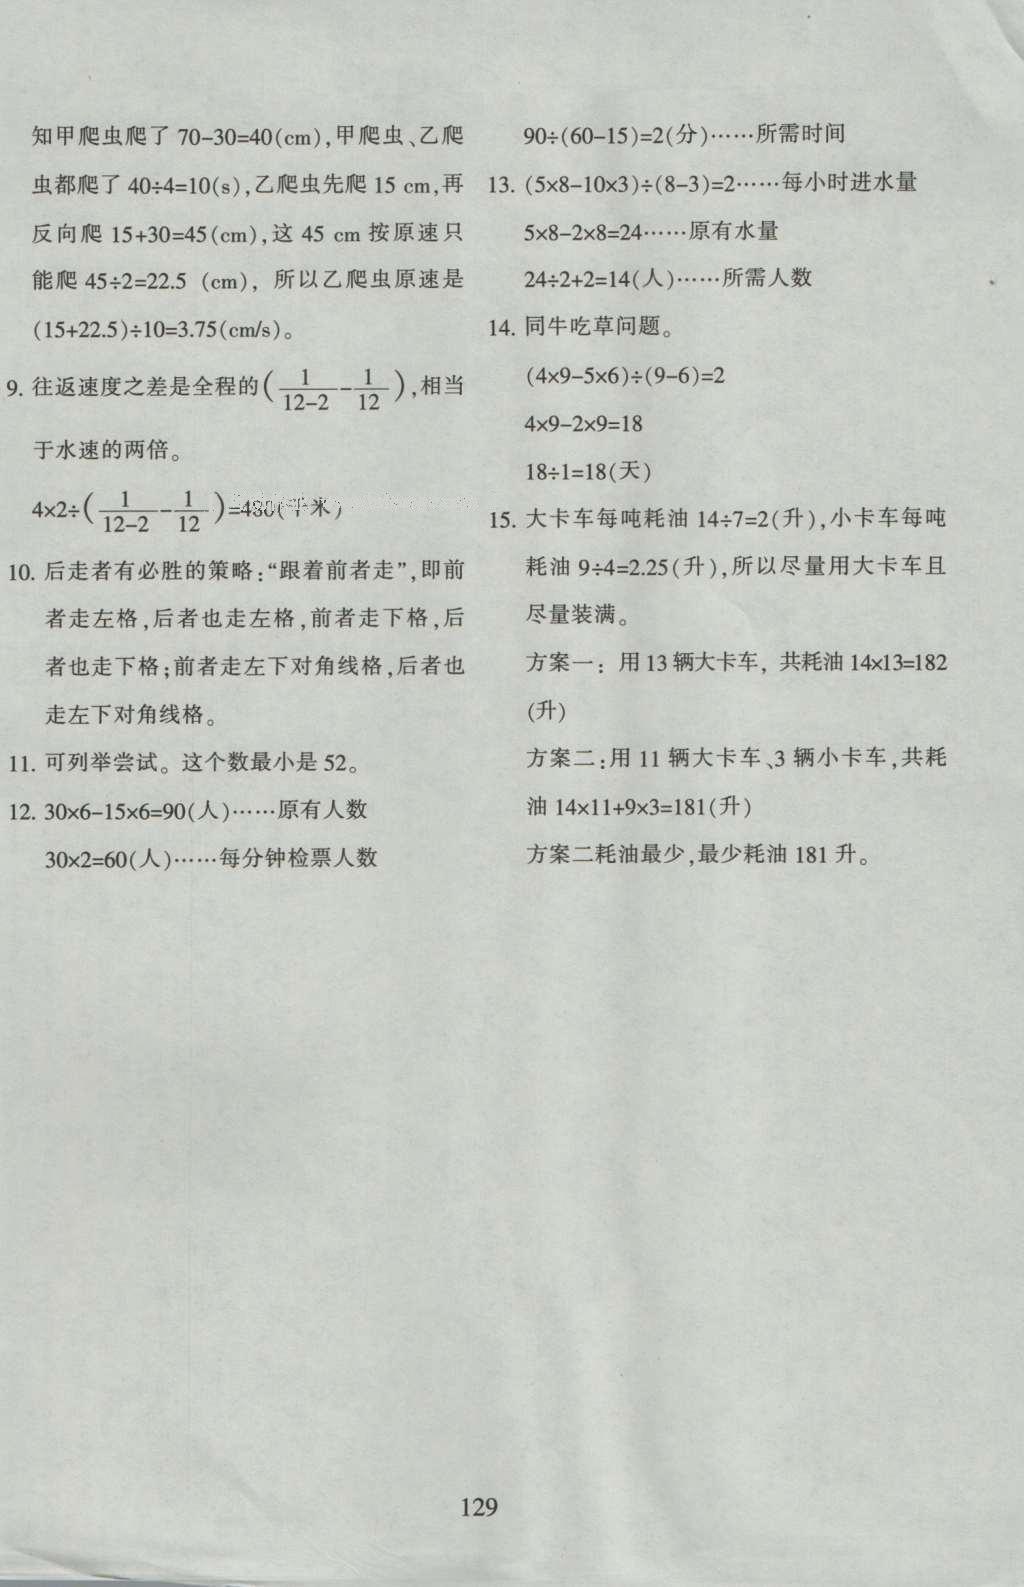 知甲爬虫爬了 70-30=40(cm),甲爬虫、乙爬
虫都爬了 40÷4=10(s),乙爬虫先爬 15 cm,再
反向爬 15+30=45(cm),这 45 cm 按原速只
能爬 45÷2=22.5 (cm), 所以乙爬虫原速是
(15+22.5)÷10=3.75(cm/s)。
9. 往返速度之差是全程的(1/(12-2)-1/12),相当
于水速的两倍。
4×2÷(1/(12-2)-1/12)=480(千米)
10. 后走者有必胜的策略:“跟着前者走”,即前
者走左格,后者也走左格,前者走下格,后
者也走下格;前者走左下对角线格,后者也
走左下对角线格。
11. 可列举尝试。这个数最小是 52。
12. 30×6-15×6=90(人)……原有人数
30×2=60(人)……每分钟检票人数
90÷(60-15)=2(分)……所需时间
13. (5×8-10×3)÷(8-3)=2……每小时进水量
5×8-2×8=24……原有水量
24÷2+2=14(人)……所需人数
14. 同牛吃草问题。
(4×9-5×6)÷(9-6)=2
4×9-2×9=18
18÷1=18(天)
15. 大卡车每吨耗油 14÷7=2(升),小卡车每吨
耗油 9÷4=2.25(升),所以尽量用大卡车且
尽量装满。
方案一: 用 13 辆大卡车, 共耗油 14×13=182
(升)
方案二:用 11 辆大卡车、3 辆小卡车,共耗
油 14×11+9×3=181(升)
方案二耗油最少,最少耗油 181 升。
129